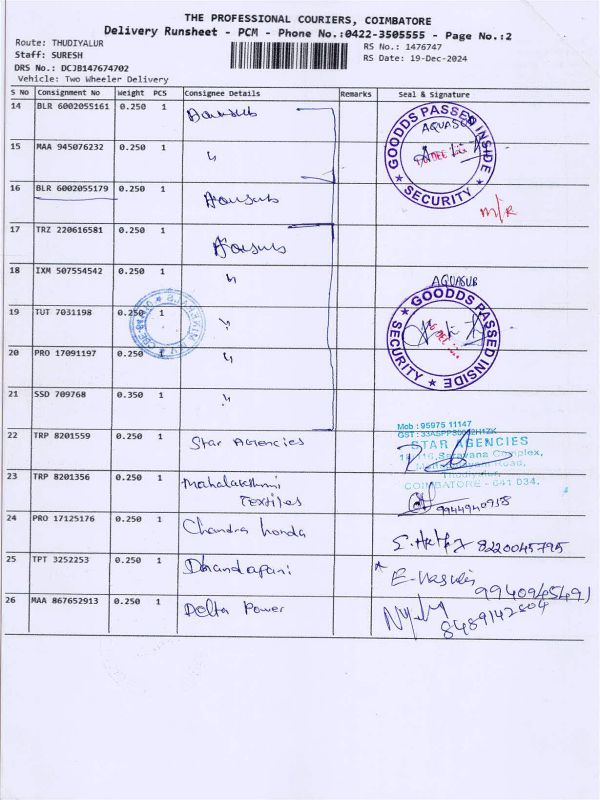 THE PROFESSIONAL COURIERS, COIMBATORE
Delivery Runsheet - PCM - Phone No.:0422-3505555 - Page No.:2
Route: THUDIYALUR
RS No.: 1476747
Staff: SURESH
RS Date: 19-Dec-2024
DRS No.: DCJB147674702
Vehicle: Two Wheeler Delivery
S No Consignment No Weight PCS Consignee Details Remarks Seal & Signature
14 BLR 6002055161 0.250 1
GOODDS PASSED INSIDE
AQUASUB
★ SECURITY ★
15 MAA 945076232 0.250 1 "
16 BLR 6002055179 0.250 1
M/R
17 TRZ 220616581 0.250 1
18 IXM 507554542 0.250 1 "
AQUASUB
GOODDS PASSED INSIDE
★ SECURITY ★
19 TUT 7031198 0.250 1 "
20 PRO 17091197 0.250 1 "
21 SSD 709768 0.350 1 "
Mob : 95975 11147
22 TRP 8201559 0.250 1 Star Agencies
STAR AGENCIES
Saravana Complex,
Road,
COIMBATORE - 641 034.
23 TRP 8201356 0.250 1 Mahalakshmi
Textiles
9944940958
24 PRO 17125176 0.250 1 Chandra honda
8220045795
25 TPT 3252253 0.250 1 Dhandapani
9940945491
26 MAA 867652913 0.250 1 Delta Power
8489142804